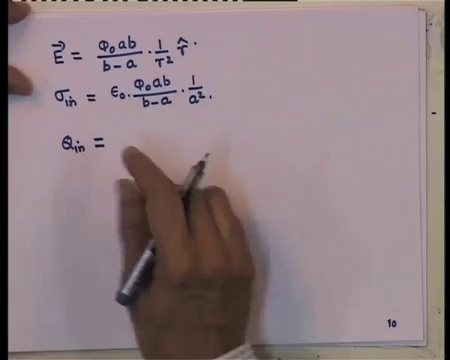 E⃗ = φ₀ab/(b-a) · 1/r² r̂.
σin = ϵ₀. φ₀ab/(b-a) · 1/a².
Qin =
10